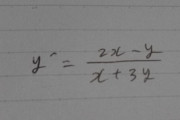 y' = \frac{2x - y}{x + 3y}